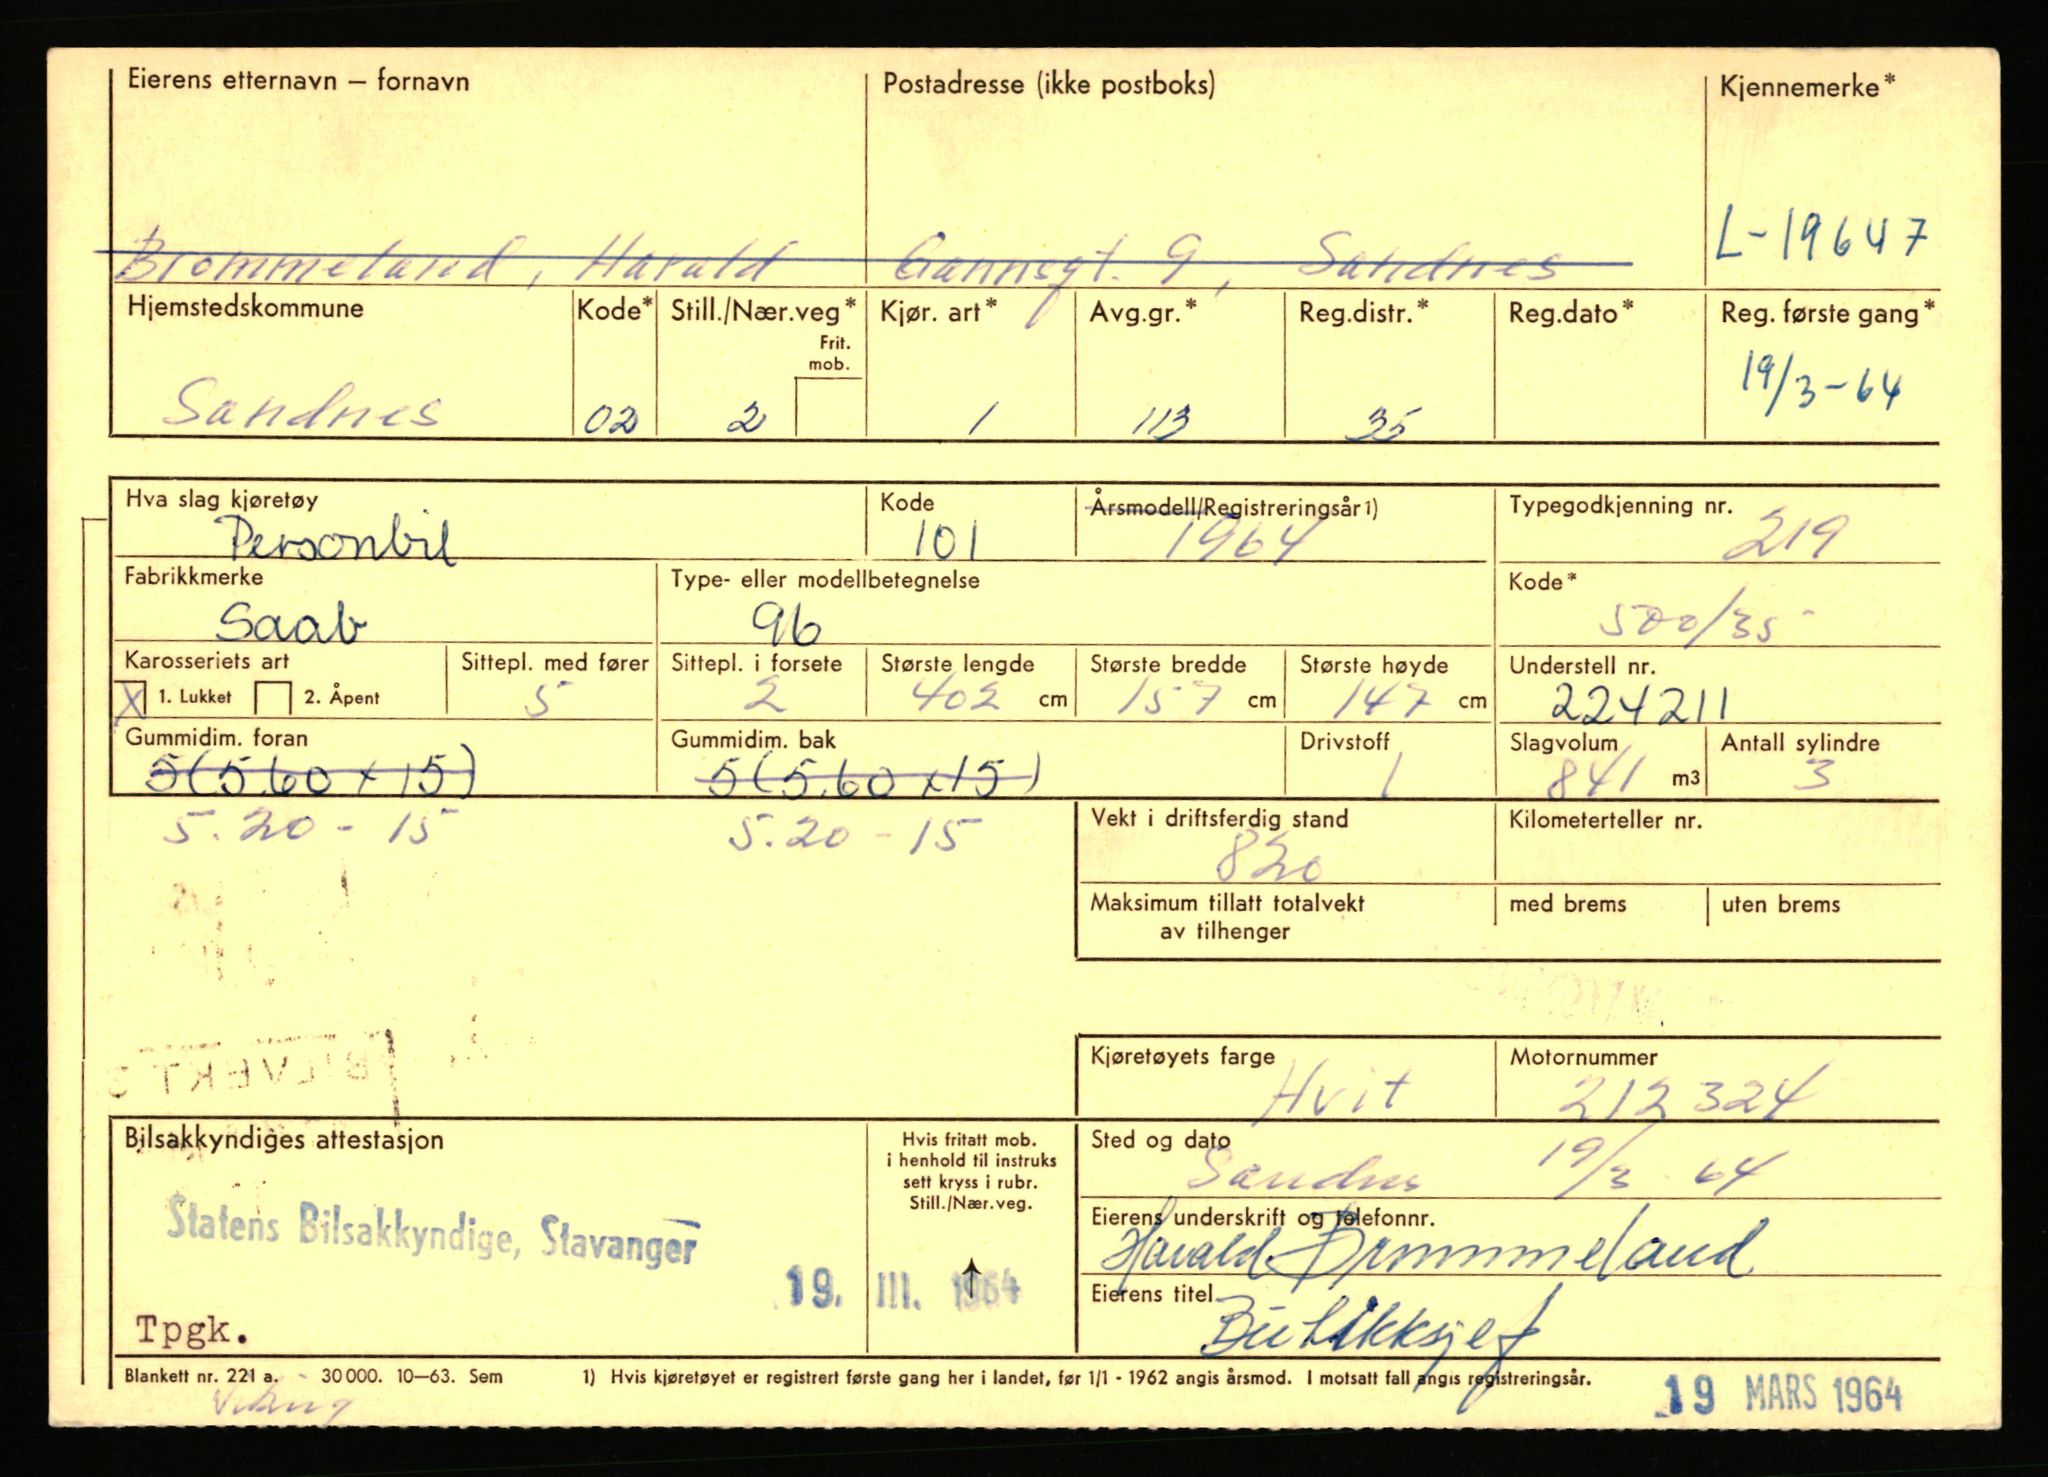 Eierens etternavn — fornavn Postadresse (ikke postboks) Kjennemerke*
Brommeland, Harald Gannsgt. 9, Sandnes L-19647
Hjemstedskommune Kode* Still./Nær.veg* Kjør. art* Avg.gr.* Reg.distr.* Reg.dato* Reg. første gang*
Frit.
mob.
Sandnes 02 2 1 113 35 19/3-64
Hva slag kjøretøy Kode Årsmodell/Registreringsår 1) Typegodkjenning nr.
Personbil 101 1964 219
Fabrikkmerke Type- eller modellbetegnelse Kode*
Saab 96 500/35
Karosseriets art Sittepl. med fører Sittepl. i forsete Største lengde Største bredde Største høyde Understell nr.
X 1. Lukket 2. Åpent 5 2 402 cm 157 cm 147 cm 224211
Gummidim. foran Gummidim. bak Drivstoff Slagvolum Antall sylindre
5(5.60 x 15) 5(5.60 x 15) 1 841 m3 3
5.20 - 15 5.20 - 15
Vekt i driftsferdig stand Kilometerteller nr.
820
Maksimum tillatt totalvekt med brems uten brems
av tilhenger
BILVERKT S
Kjøretøyets farge Motornummer
Hvit 212324
Bilsakkyndiges attestasjon Hvis fritatt mob.
i henhold til instruks
sett kryss i rubr.
Still./Nær.veg.
Sted og dato
Sandnes 19/3 64
Statens Bilsakkyndige, Stavanger
Eierens underskrift og telefonnr.
Harald Brommeland
19. III. 1964
Eierens titel
Butikksjef
Tpgk.
Blankett nr. 221 a. 30 000. 10—63. Sem 1) Hvis kjøretøyet er registrert første gang her i landet, før 1/1 - 1962 angis årsmod. I motsatt fall angis registreringsår.
Viking
19 MARS 1964